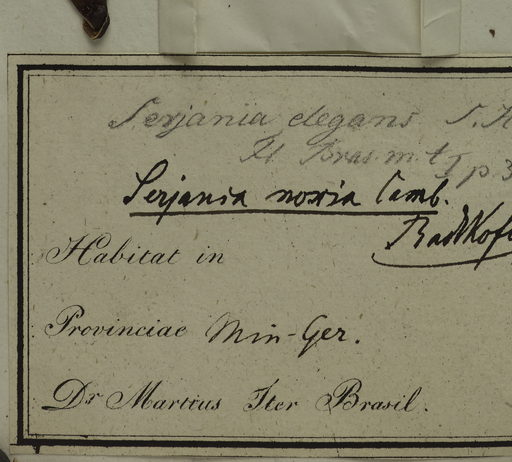 Serjania elegans S. H
Fl Bras. m. t I p. 3
Serjania noxia Camb.
Radlkofe
Habitat in
Provinciae Min-Ger.
Dr Martius Iter Brasil.